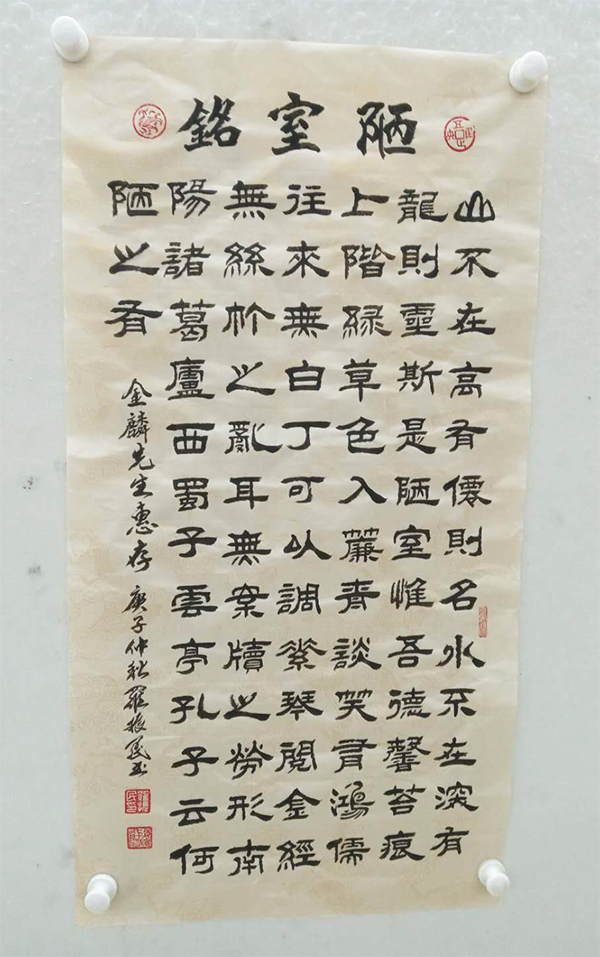 陋室銘
山不在高有僊則名水不在深有
龍則靈斯是陋室惟吾德馨苔痕
上階緑草色入簾青談笑有鴻儒
往來無白丁可以調素琴閲金經
無絲竹之亂耳無案牘之勞形南
陽諸葛廬西蜀子雲亭孔子云何
陋之有
金麟先生惠存 庚子仲秋羅振民書